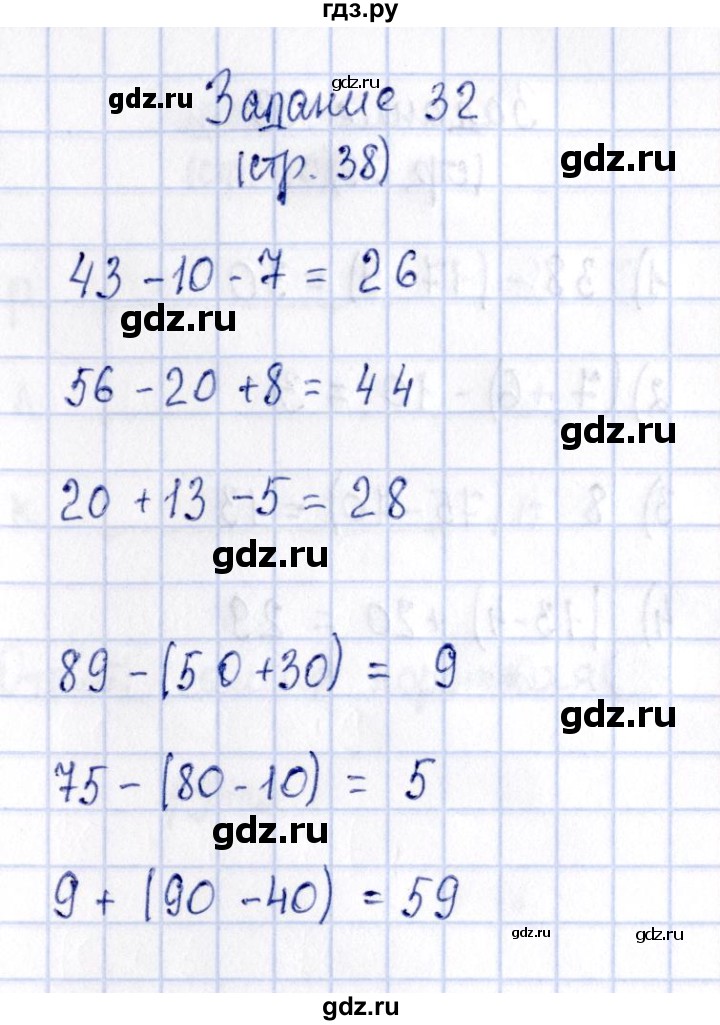 гдз.ру
gdz.ru
gdz.ru
Задание 32
gdz.ru
(стр. 38)
43 - 10 - 7 = 26
gdz.ru
56 - 20 + 8 = 44
gdz.ru
20 + 13 - 5 = 28
gdz.ru
89 - (50 + 30) = 9
gdz.ru
75 - (80 - 10) = 5
gdz.ru
9 + (90 - 40) = 59
gdz.ru
gdz.ru
gdz.ru